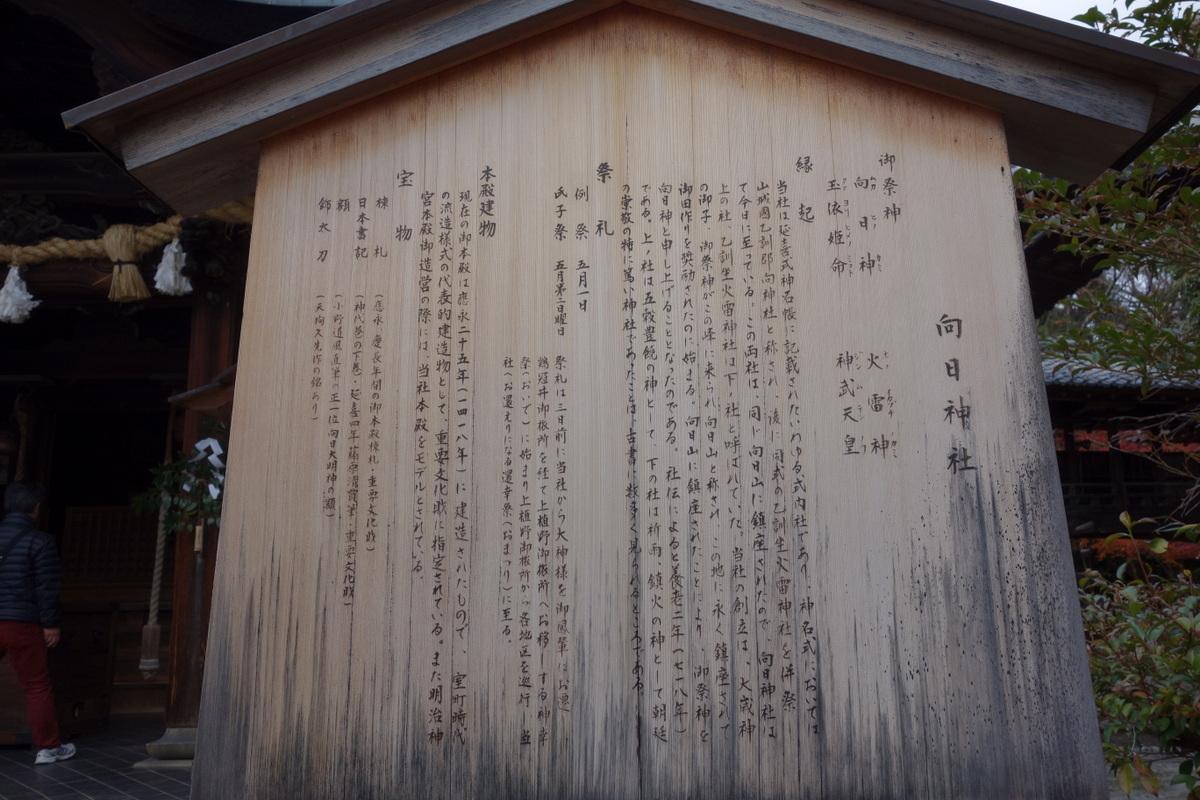 向日神社
御祭神
向日神
火雷神
玉依姫命
神武天皇
縁起
当社は延喜式神名帳に記載されたいわゆる式内社であり、神名式においては
山城國乙訓郡向神社と称され、後に同式の乙訓坐火雷神社を併祭
して今日に至っている。この両社は、同じ向日山に鎮座されたので、向日神社は
上の社、乙訓坐火雷神社は下ノ社と呼ばれていた。当社の創立は、大歳神
の御子、御祭神がこの峰に来られ、向日山と称され、この地に永く鎮座されて
御田作りを奨励されたのに始まる。向日山に鎮座されたことにより、御祭神を
向日神と申し上げることとなったのである。社伝によると養老二年(七一八年)
である。上ノ社は五穀豊饒の神として、下の社は祈雨、鎮火の神として朝廷
の崇敬の特に篤い神社であったことは、古書に数多く見られるところである。
祭礼
例祭 五月一日
氏子祭 五月第二日曜日
祭礼は三日前に当社から大神様を御鳳輦にお遷
鶏冠井御旅所を経て上植野御旅所へお移しする神幸
祭(おいで)に始まり上植野御旅所から各地区を巡行し当
社へお還りになる還幸祭(おまつり)に至る。
本殿建物
現在の御本殿は應永二十五年(一四一八年)に建造されたもので、室町時代
の流造様式の代表的建造物として、重要文化財に指定されている。また明治神
宮本殿御造営の際には、当社本殿をモデルとされている。
宝物
棟札 (應永・慶長年間の御本殿棟札・重要文化財)
日本書記 (神代巻の下巻・延喜四年藤原清貫筆・重要文化財)
額 (小野道風直筆の正一位向日大明神の額)
飾太刀 (天狗久先作の銘あり)